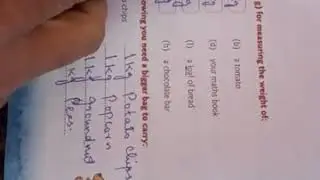 g) for measuring the weight of:
(b) a tomato
(d) your maths book
(f) a loaf of bread
(h) a chocolate bar
owing you need a bigger bag to carry:
chips
1 kg Potato chips
1 kg Popcorn
1 kg groundnut
kg Peas.